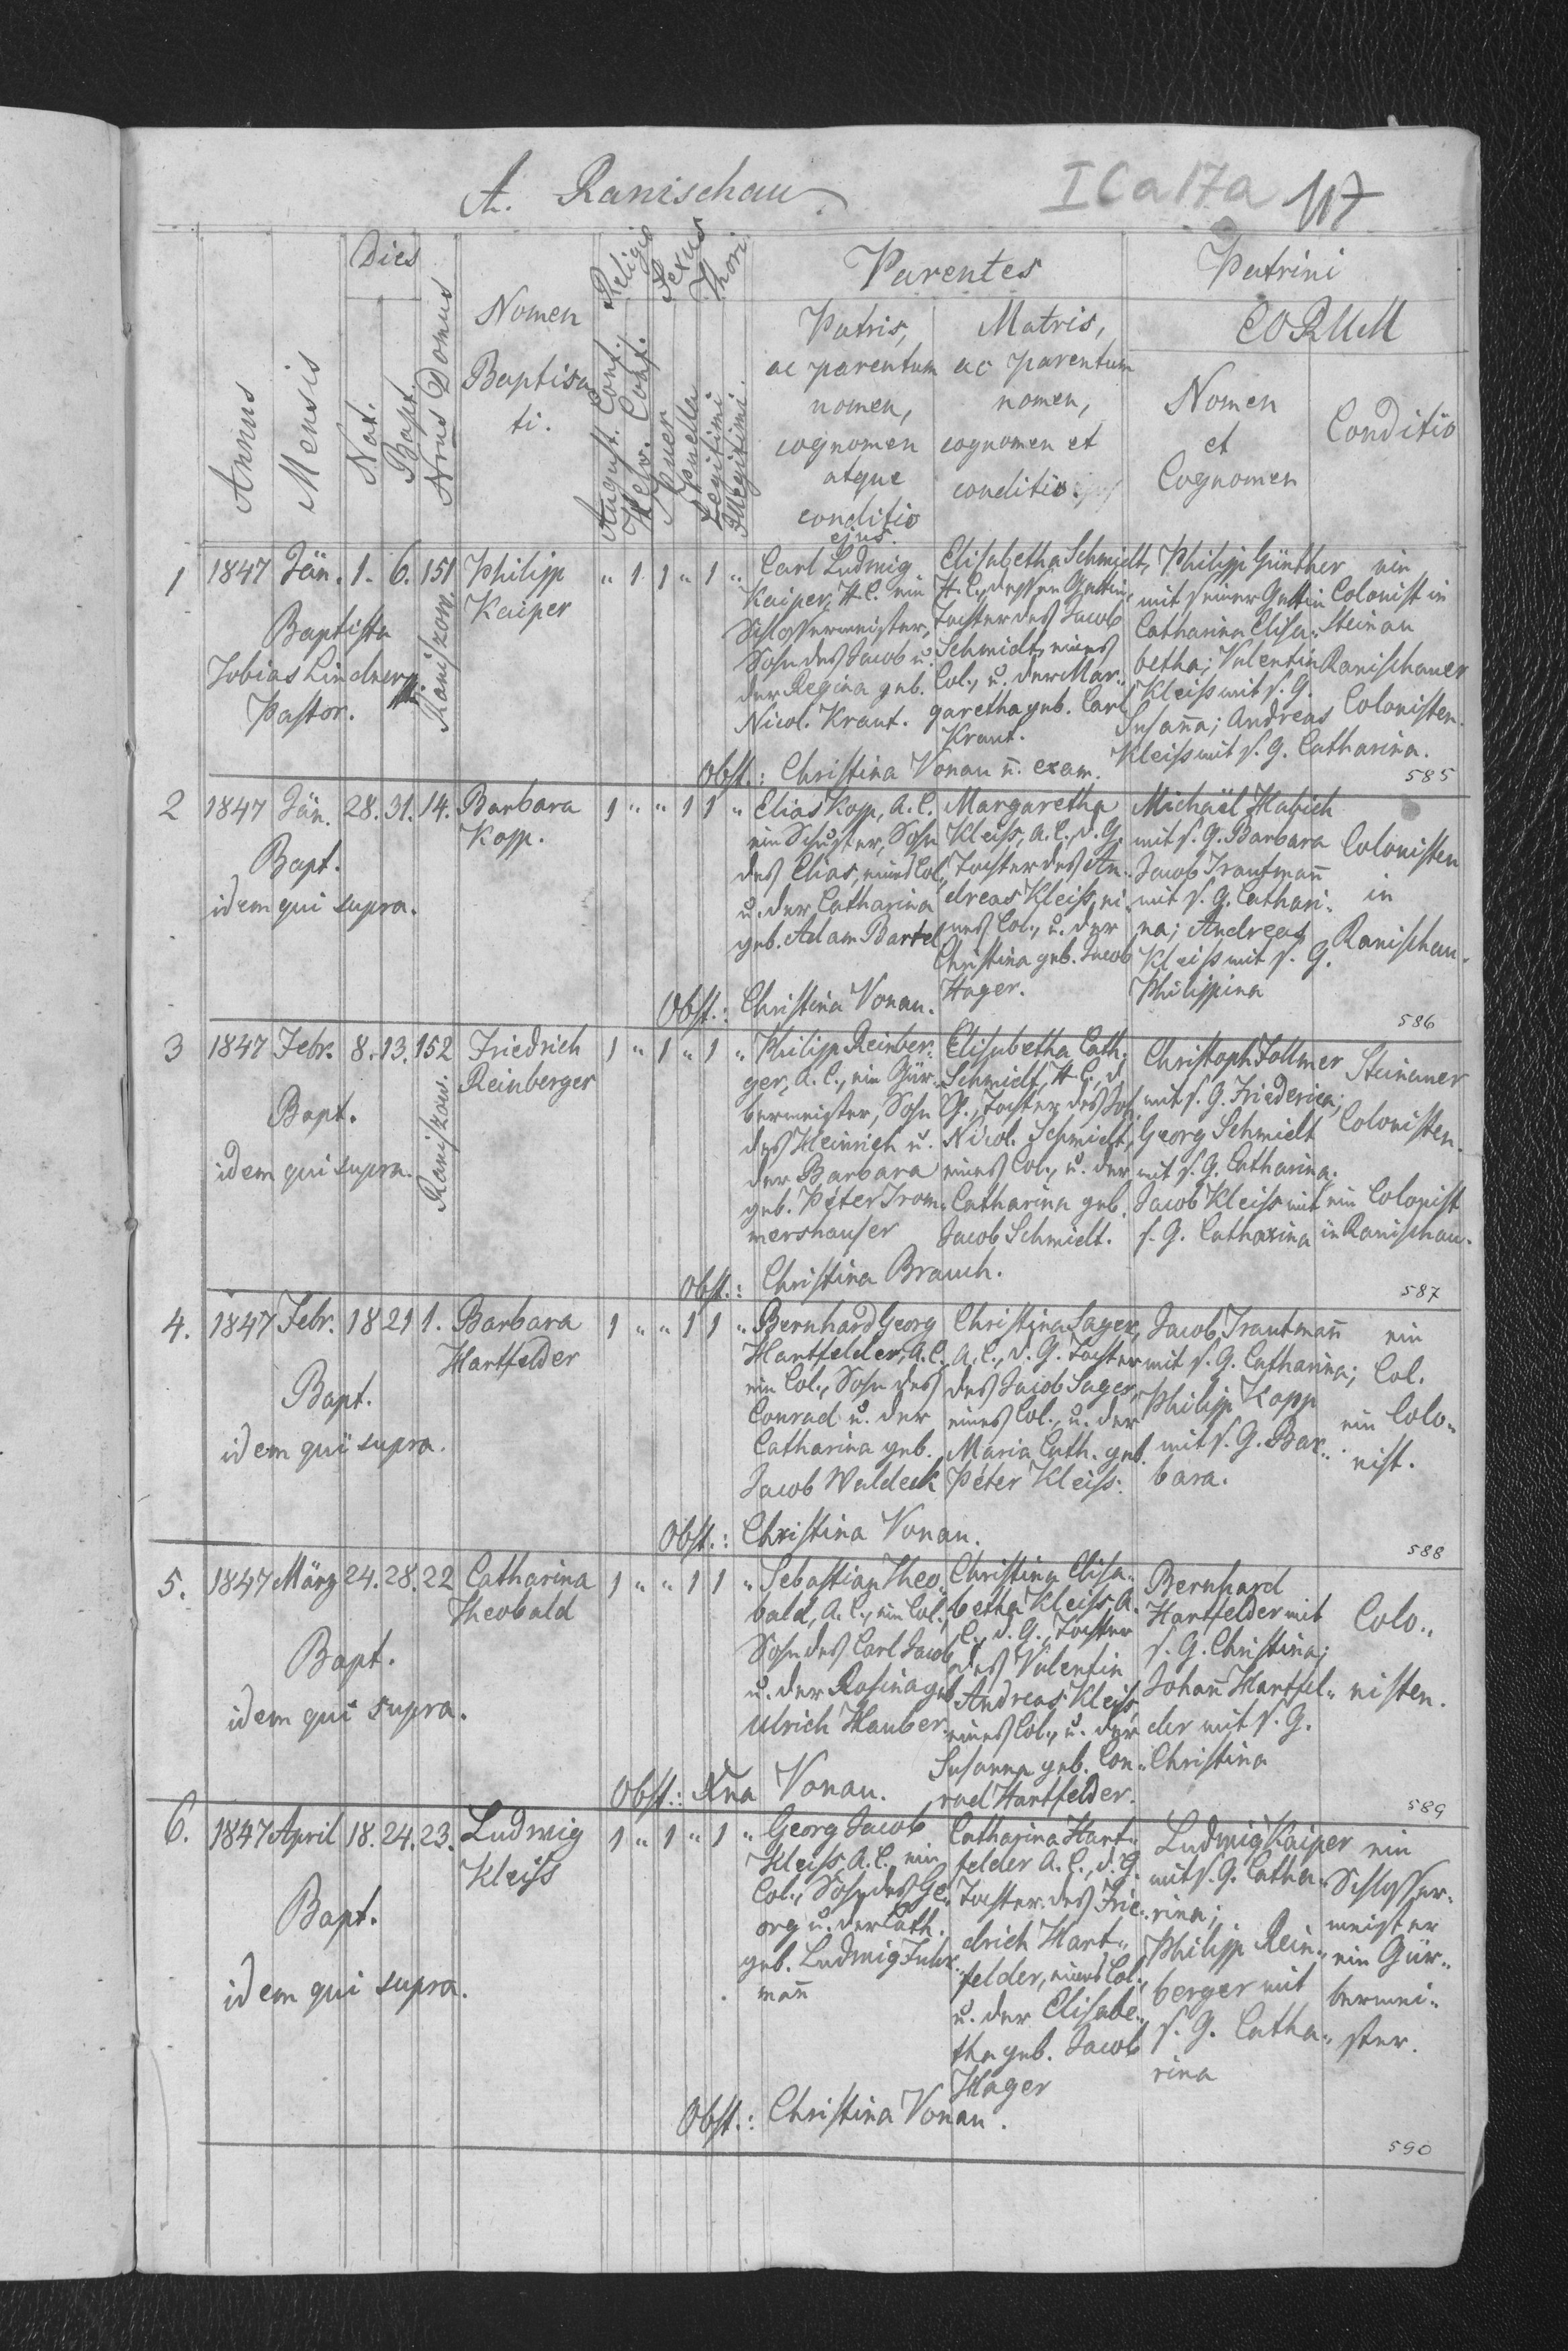 A. Ranischau.
I C a 17a 117
Annus
Mensis
Dies
Nat.
Bapt.
Nrus Domus
Nomen
Baptisa
ti.
Religio
August. Conf.
Helv. Conf.
Sexus
Puer
Puella
Thori
Legitimi
Illegitimi
Parentes
Patris,
ac parentum
nomen,
cognomen
atque
conditio
ejus.
Matris,
ac parentum
nomen,
cognomen et
conditio
Patrini
EORUM
Nomen
et
Cognomen
Conditio
1 1847 Jän. 1. 6. 151 Philipp
Kaiper
Raniszow.
" 1 1 " 1 "
Baptista
Tobias Lindner
Pastor.
Carl Ludwig
Kaiper, H. C. ein
Schlossermeister,
Sohn des Jacob u.
der Regina geb.
Nicol. Kraut.
Elisabetha Schmidt,
H. C., dessen Gattin,
Tochter des Jacob
Schmidt, eines
Col., u. der Mar„
garetha geb. Carl
Kraut.
Philipp Günther
mit seiner Gattin
Catharina Elisa„
betha; Valentin
Kleiss mit s. G.
Susana; Andreas
Kleiss mit s. G. Catharina.
ein
Colonist in
Steinau
Ranischauer
Colonisten.
Obst.: Christina Vonau n. exam.
585
2 1847 Jän. 28. 31. 14. Barbara
Kopp.
1 " " 1 1 "
Bapt.
idem qui supra.
Elias Kopp, A. C.
ein Schuster, Sohn
des Elias, eines Col.
u. der Catharina
geb. Adam Bartel
Margaretha
Kleiss, A. C., d. G.
Tochter des An„
dreas Kleiss, ei„
nes Col., u. der
Christina geb. Jacob
Hager.
Michaël Habich
mit s. G. Barbara
Jacob Trautmann
mit s. G. Cathari„
na; Andreas
Kleiss mit s. G.
Philippina
Colonisten
in
Ranischau.
Obst.: Christina Vonau.
586
3 1847 Febr. 8. 13. 152 Friedrich
Reinberger
Raniszow.
1 " 1 " 1 "
Bapt.
idem qui supra.
Philipp Reinber„
ger, A. C., ein Gür„
bermeister, Sohn
des Heinrich u.
der Barbara
geb. Péter Trom„
mershauser
Elisabetha Cath.
Schmidt, H. C., d.
G., Tochter des Joh.
Nicol. Schmidt,
eines Col., u. der
Catharina geb.
Jacob Schmidt.
Christoph Follmer
mit s. G. Friederica;
Georg Schmidt
mit s. G. Catharina;
Jacob Kleiss mit
s. G. Catharina
Steinauer
Colonisten.
ein Colonist
in Ranischau.
Obst.: Christina Brauch.
587
4. 1847 Febr. 18 21 1. Barbara
Hartfelder
1 " " 1 1 "
Bapt.
idem qui supra.
Bernhard Georg
Hartfelder, A. C.
ein Col., Sohn des
Conrad u. der
Catharina geb.
Jacob Waldeck
Christina Sager,
A. C., d. G. Tochter
des Jacob Sager,
eines Col., u. der
Maria Cath. geb.
Péter Kleiss.
Jacob Trautmann
mit s. G. Catharina;
Philipp Kopp
mit s. G. Bar„
bara.
ein
Col.
ein Colo„
nist.
Obst.: Christina Vonau.
588
5. 1847 März 24. 28. 22 Catharina
Theobald
1 " " 1 1 "
Bapt.
idem qui supra.
Sebastian Theo„
bald, A. C., ein Col.,
Sohn des Carl Jacob
u. der Rosina geb.
Ulrich Hauber.
Christina Elisa„
betha Kleiss, A.
C., d. G., Tochter
des Valentin
Andreas Kleiss,
eines Col., u. der
Susanna geb. Con„
rad Hartfelder.
Bernhard
Hartfelder mit
s. G. Christina;
Johann Hartfel„
der mit s. G.
Christina
Colo„
nisten.
Obst.: Xna Vonau.
589
6. 1847 April 18. 24. 23. Ludwig
Kleiss
1 " 1 " 1 "
Bapt.
idem qui supra.
Georg Jacob
Kleiss, A. C. ein
Col., Sohn des Ge„
org u. der Cath.
geb. Ludwig Fuhr„
mann
Catharina Hart„
felder A. C., d. G.
Tochter des Frie„
drich Hart„
felder, eines Col.,
u. der Elisabe„
tha geb. Jacob
Hager
Ludwig Kaiper
mit s. G. Catha„
rina;
Philipp Rein„
berger mit
s. G. Catha„
rina
ein
Schlosser„
meister
ein Gür„
bermei„
ster.
Obst.: Christina Vonau.
590